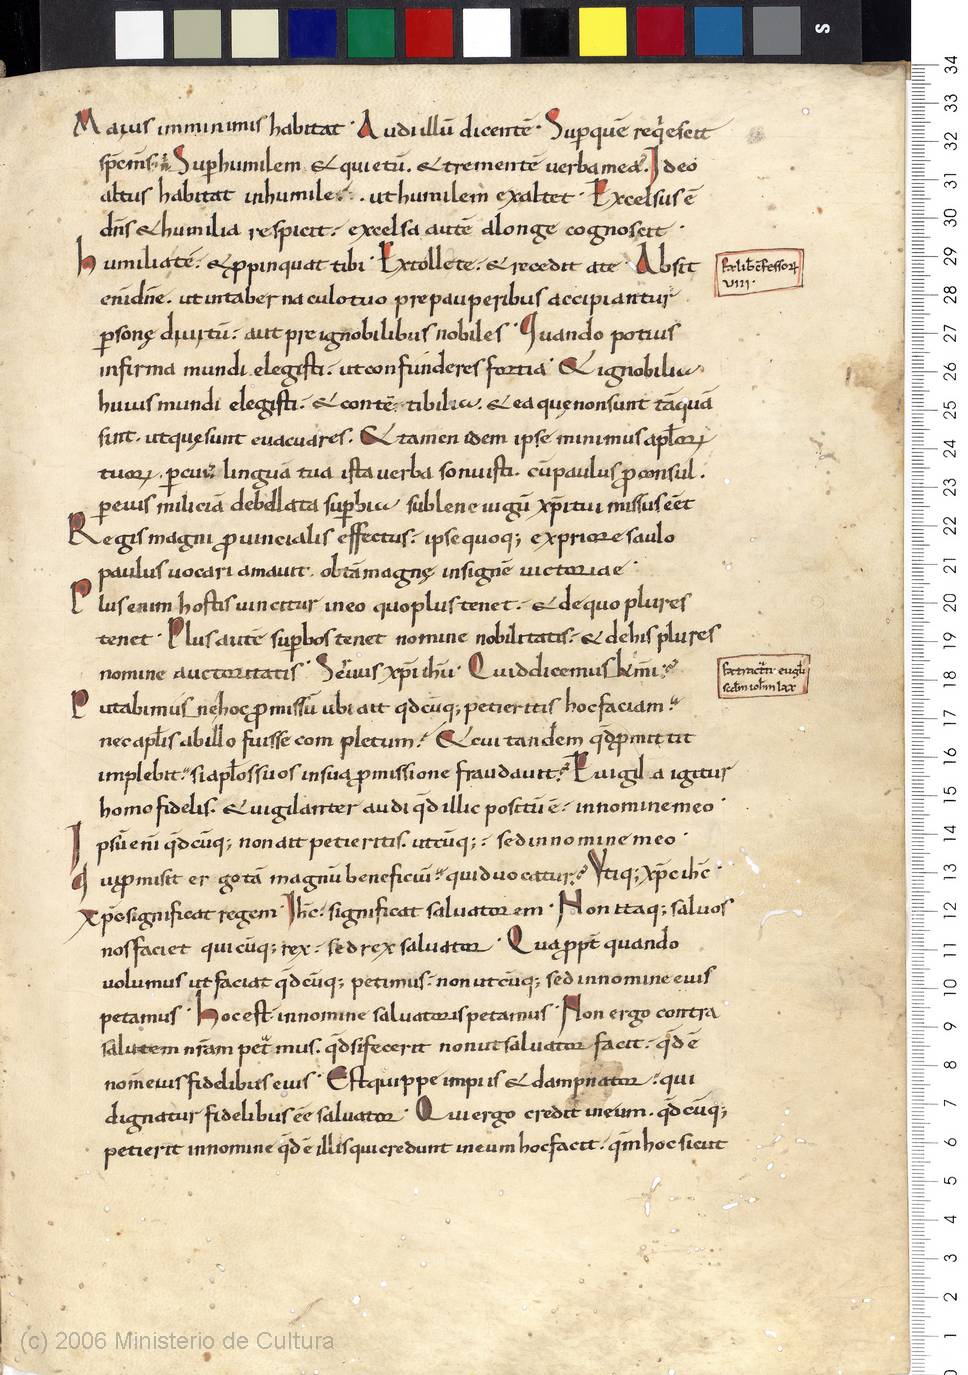 Maius inminimis habitat. Audi illū dicentē. Sup quē req̇escit
sp̄c̄ m̄s. Sup humilem & quietū. & trementē verba mea. Ideo
altus habitat inhumile. ut humilem exaltet. Excelsus ē
dn̄s & humilia respicit. excelsa autē alonge cognoscit.
humiliatē. & ꝓpinquat tibi. Extollete. & recedit ate. Absit
eni dn̄e. ut intabernaculo tuo prepauperibus accipiantur
ꝑsonę diuitū. aut preignobilibus nobiles. Quando potius
infirma mundi elegisti. ut confunderes fortia. & ignobilia
huius mundi elegisti. & contē tibilia. & ea quę non sunt tāquā
sint. ut quę sunt euacuares. & tamen idem ipse minimus apl̄oꝝ
tuoꝝ. ꝑ cui linguā tua ista verba sonuisti. cū paulus ꝓconsul.
ꝑ eius miliciā debellata suꝑbia sub lene iugū xp̄i tui missus eēt
Regis magni ꝓuincialis effectus. ipse quoq; expriore saulo
paulus uocari amauit. ob tā magnę insignē uictoriae.
Plus enim hostis uincitur in eo quo plus tenet. & de quo plures
tenet. Plus autē suꝑbos tenet nomine nobilitatis. & de his plures
nomine auctoritatis. Seruus xp̄i ih̄u. Quid dicemus
Putabimus ne hoc ꝓmissū ubi ait qd̄cūq; petieritis hoc faciam
nec apl̄is ab illo fuisse completum. & cui tandem qd̄ ꝓmittit
implebit. si apl̄os suos in sua ꝓmissione fraudauit. Euigila igitur
homo fidelis. & uigilanter audi qd̄ illic positū ē. innomine meo.
Ipsū eni qd̄cūq; non ait petieritis. utcūq; sed innomine meo.
Qui ꝓmisit ergo tā magnū beneficiū. quid uocatur. Vtiq; xp̄c ih̄c.
xp̄c significat regem. Ih̄c significat saluatorem. Non itaq; saluos
nos faciet quicūq; rex. sed rex saluator. Quaꝓpt̄ quando
volumus ut faciat qd̄cūq; petimus. non utcūq; sed innomine eius
petamus. hoc est innomine saluatoris petamus. Non ergo contra
salutem nr̄am petamus. qd̄ si fecerit non ut saluator facit. qd̄ ē
nom̄ eius fidelibus eius. Est quippe impiis & dampnator. qui
dignatur fidelibus eē saluator. Qui ergo credit in eum. qd̄cūq;
petierit innomine qd̄ ē illis qui credunt in eum hoc facit. qm̄ hoc sicut
Ex lib̄ c̄fessorꝝ
VIIII.
Ex tractū eug̃li
scd̄m ioh̄m lxx
(c) 2006 Ministerio de Cultura
S
34
33
32
31
30
29
28
27
26
25
24
23
22
21
20
19
18
17
16
15
14
13
12
11
10
9
8
7
6
5
4
3
2
1
0